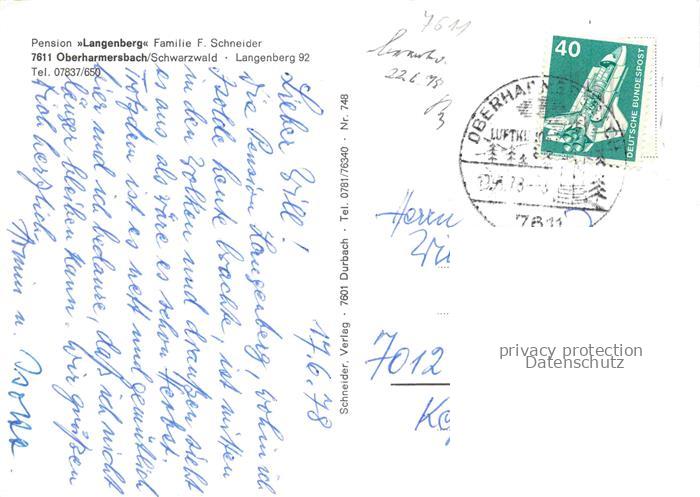 Pension »Langenberg« Familie F. Schneider
7611 Oberharmersbach/Schwarzwald · Langenberg 92
Tel. 07837/650
17.6.78
Lieber Willi!
Die Pension Langenberg, wohin ich
Isolde heute brachte, ist mitten
in den Wolken und draußen sieht
es aus als wäre es schon Herbst.
Trotzdem ist es nett und gemütlich
hier und ich bedaure, daß ich nicht
länger bleiben kann. Wir grüßen
Dich herzlich
Armin u. Isolde.
Schneider, Verlag · 7601 Durbach · Tel. 0781/76340 · Nr. 748
7611
22.6.78
40
DEUTSCHE BUNDESPOST
OBERHARMERSBACH
LUFTKURORT
7611
Herrn
Wi
7012
privacy protection
Datenschutz